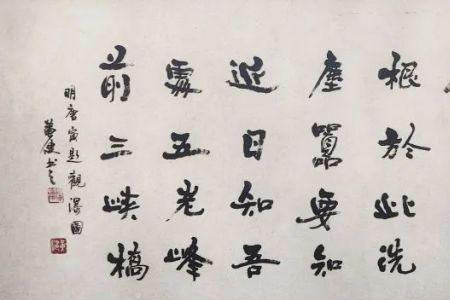 根於此洗
塵囂要知
近日知吾
處五老峰
前三峽橋
明唐寅題觀瀑圖
書之